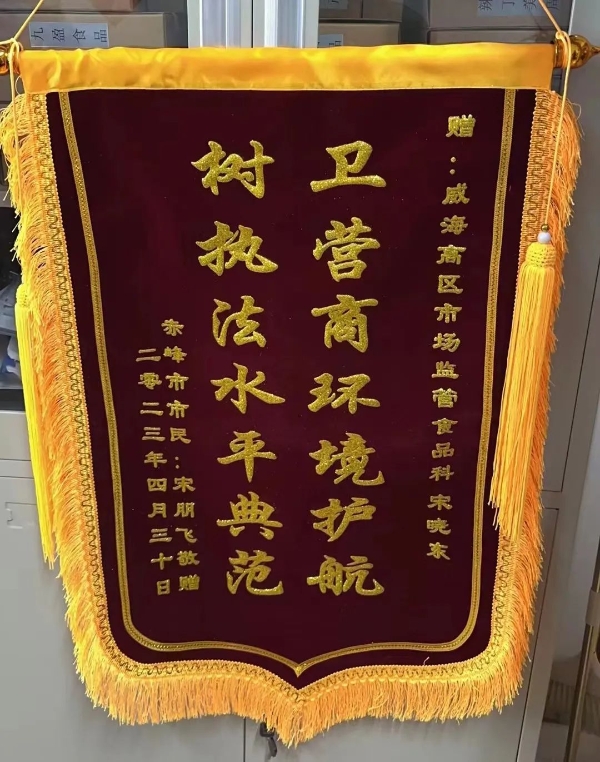 九盈食品
赠：威海高区市场监管食品科 宋晓东
卫营商环境护航
树执法水平典范
赤峰市市民：宋朋飞敬赠
二零二三年四月三十日